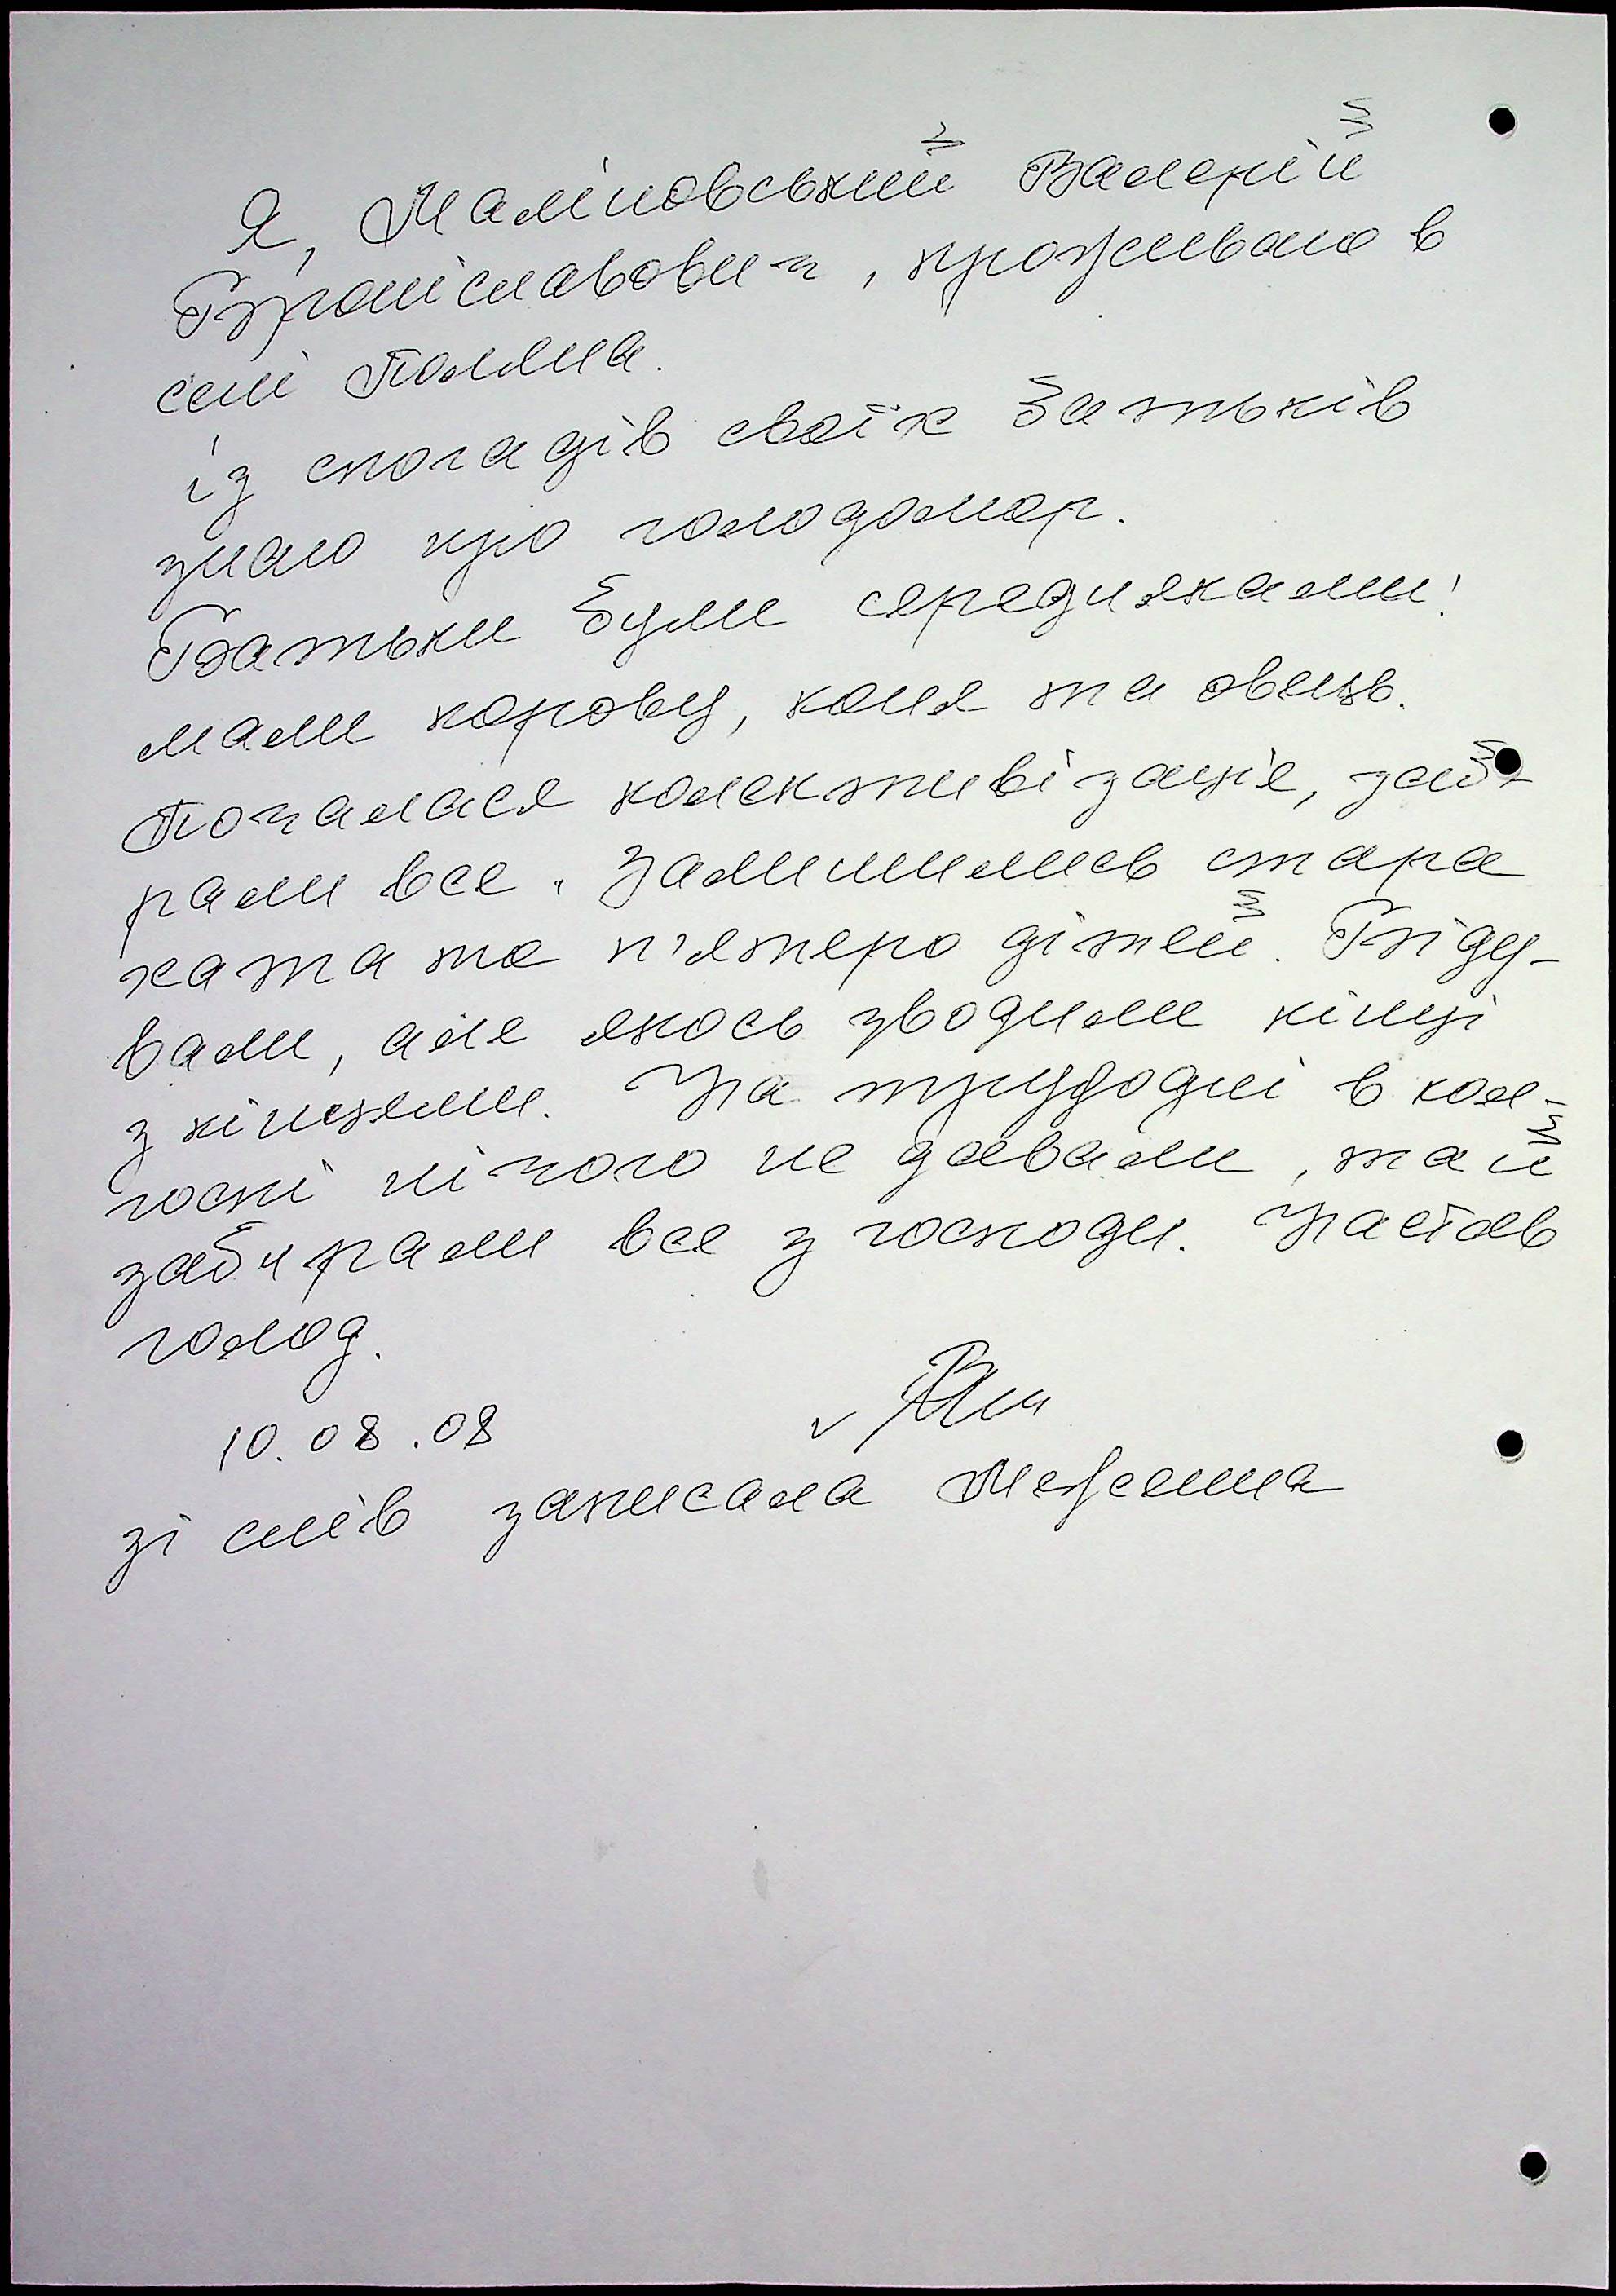 Я, Маліновський Валерій
Броніславович, проживаю в
селі Поляна.
із спогадів своїх батьків
знаю про голодомор.
Батьки були середняками!
мали корову, коня та овець.
Почалася колективізація, заб-
рали все. Залишились стара
хата та п'ятеро дітей. Біду-
вали, але якось зводили кінці
з кінцями. На трудодні в кол-
госпі нічого не давали, та й
забирали все з господи. Настав
голод.
10.08.08
зі слів записала